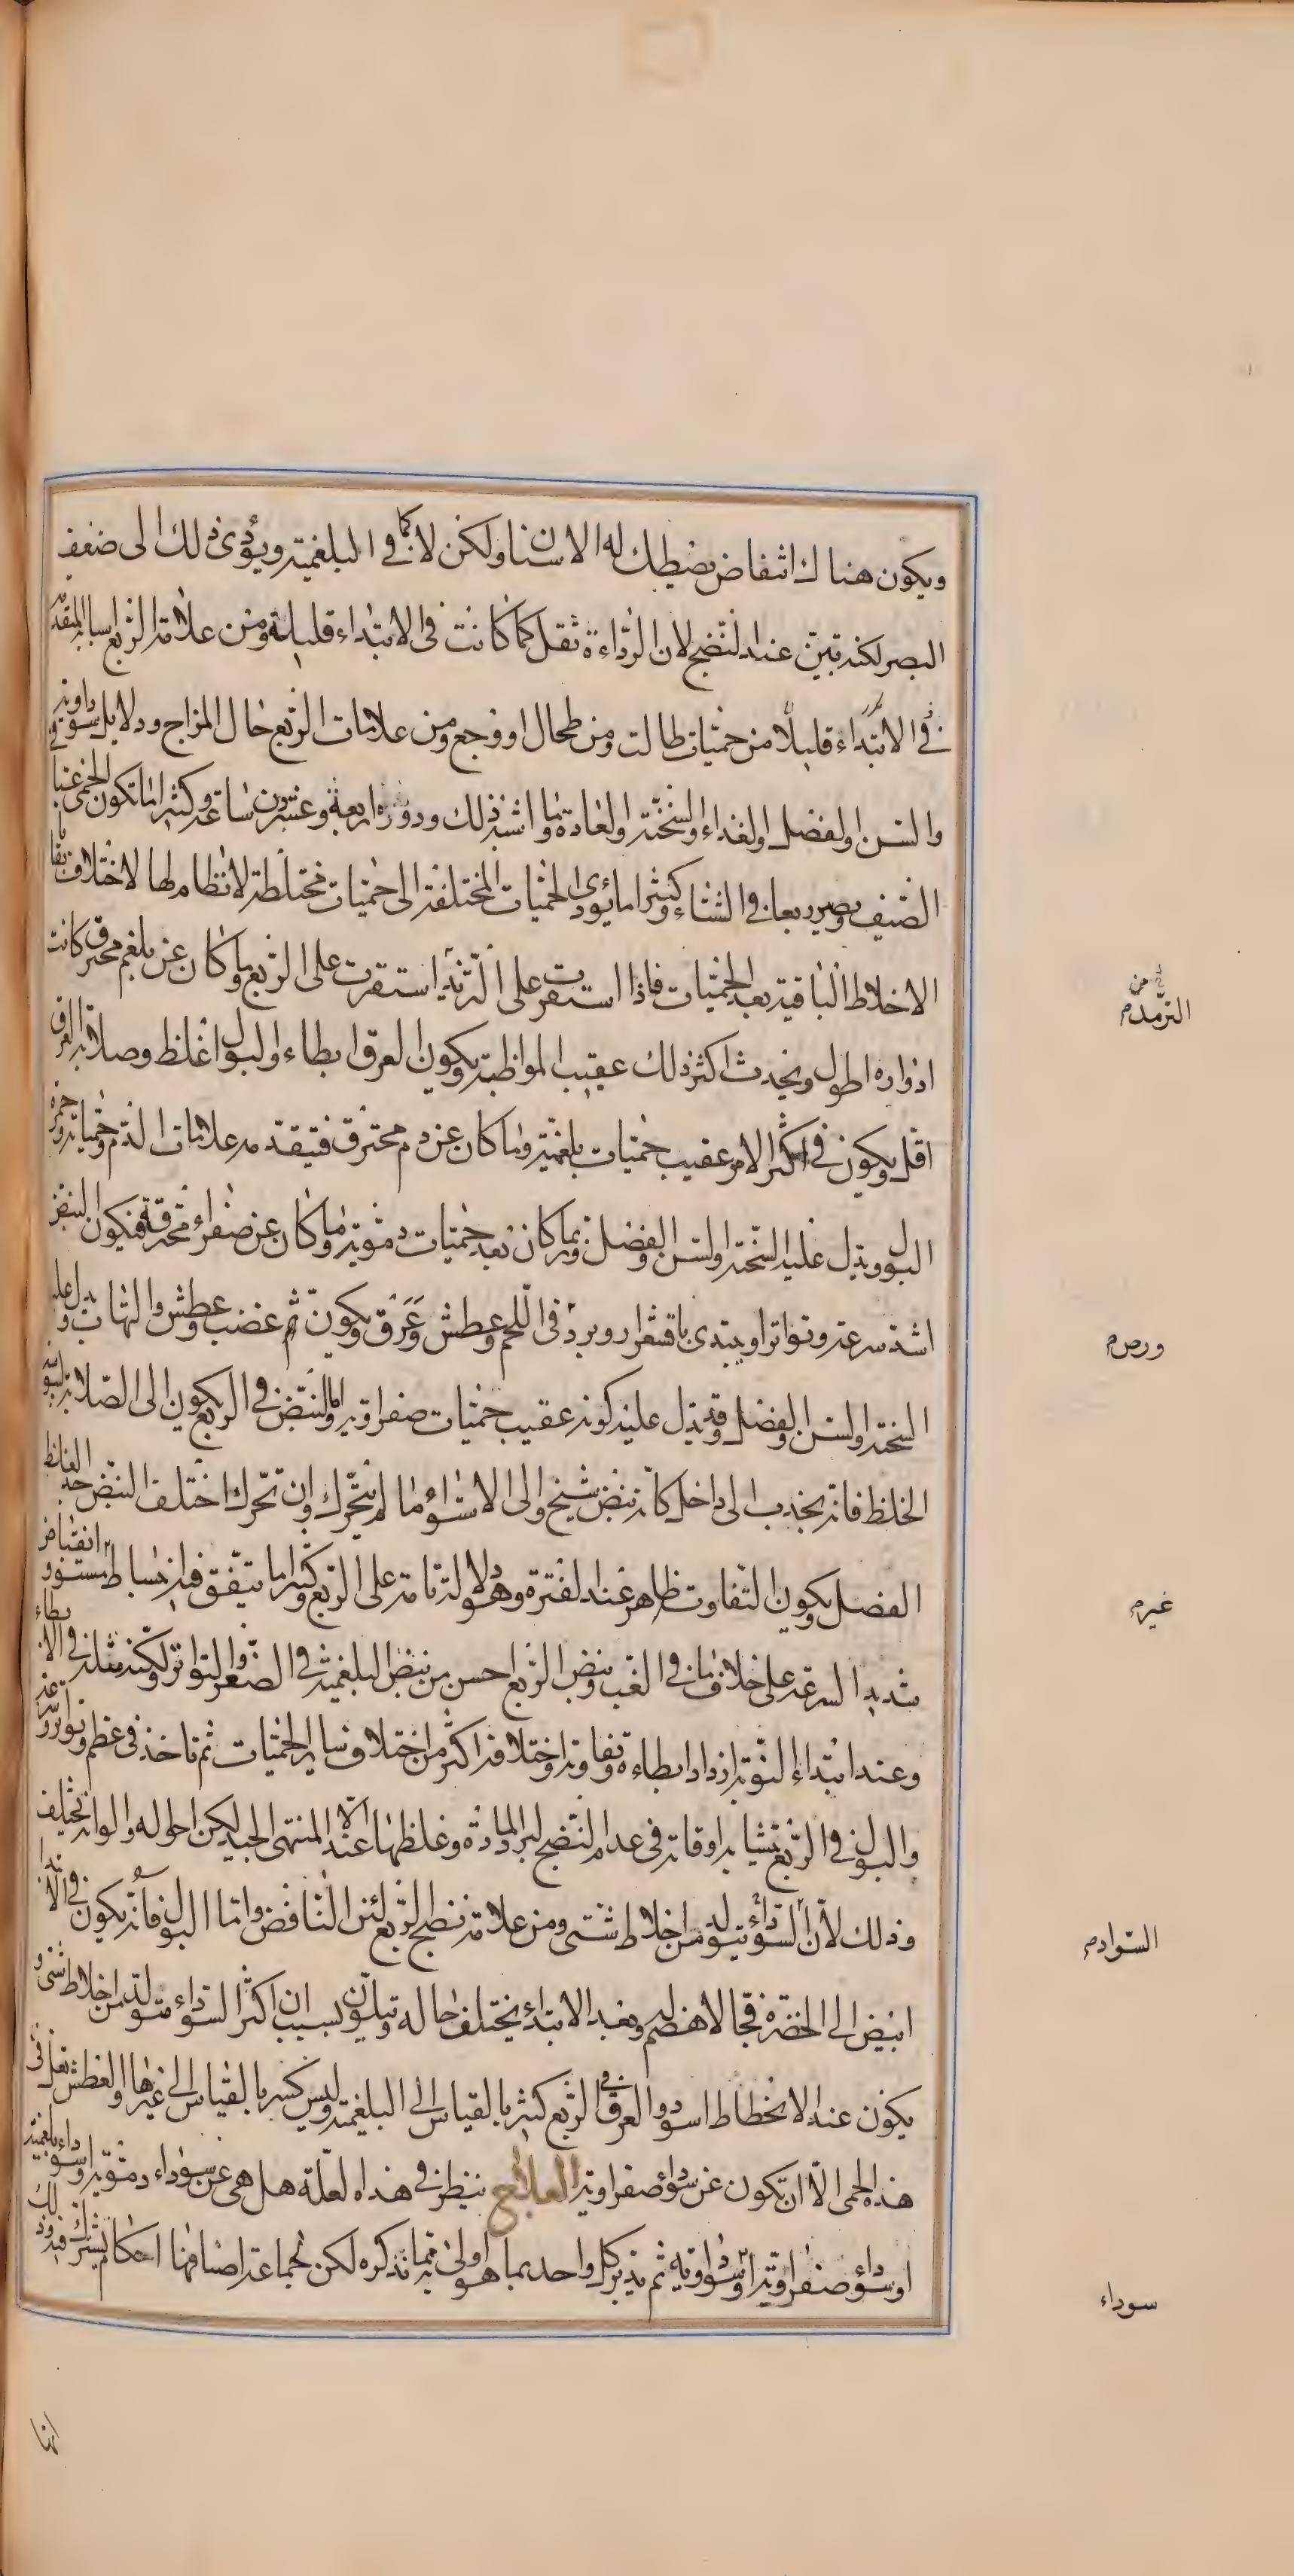 ويكون هناك انتفاض يضطك له الاسنان ولكن لا كما في البلغمية ويؤدى ذلك الى ضعف
البصر لكنه تبين عند النضج لان الرداءة تقل كما كانت في الابتداء قليلة ومن علامة الربع اسبابه المتقدمة
في الابتداء قليلا من حميات طالت ومن طحال او وجع ومن علامات الربع حال المزاج ودلايل سوداوية في
والسن والفصل والغذاء والسخنة والعادة وما اشبه ذلك ودوره اربعة وعشرون ساعة وكثيرا ما تكون الحمى غبا
الصيف ويصير ربعا في الشتاء وكثيرا ما يؤدى الحميات المختلفة الى حميات مختلطة لا نظام لها لاختلاف بقايا
الاخلاط الباقية بعد الحميات فاذا استقرت على الترمد استقرت على الربع وما كان عن بلغم محترق كانت
ادواره اطول ويحدث اكثر ذلك عقيب المواظبة ويكون العرق ابطاء والبول اغلظ وصلابة العرق
اقل ويكون في اكثر الامر عقيب حميات بلغمية وما كان عن دم محترق فتيقدمه علامات الدم وحمياته وحمرة
البول ويدل عليه السخنة والسن والفصل وربما كان بعد حميات دموية وما كان عن صفراء محترقة فيكون النبض
اشد سرعة وتواترا ويبتدى باقشعرار وبرد في اللحم وعطش وعرق ويكون ثم غضب وعطش والتهاب ويدل عليه
السخنة والسن والفصل وقد يدل عليه كونه عقيب حميات صفراوية واما النبض في الربع يكون الى الصلابة ليبوسة
الخلط فانه يجذب الى داخل كانه نبض شيخ والى الاستواء ما لم يتحرك وان تحرك اختلف النبض جدا لغلظ
الفضل ويكون التفاوت ظاهر عند الفترة وهو دلالة تامة على الربع وكثيرا ما يتفق فيه انبساط مستو وانقباض
شديد السرعة على خلاف ما في الغب ونبض الربع احسن من نبض البلغمية في الصغر والتواتر ولكنه مثله في الابطاء
وعند ابتداء النوبة ازداد ابطاءه وتفاوته واختلافه اكثر من اختلاف ساير الحميات ثم تاخذ في عظم وتواتر وسرعة
والبول في الربع تتشابه اوقاته في عدم النضج لبرد المادة وغلظها الا عند المنتهى الجيد لكن احواله والوانه تختلف
وذلك لان السوداء يتولد من اخلاط شتى ومن علامة نضج الربع لين النافض واما البول فانه يكون في الابتداء
ابيض الى الخضرة فجا لا هضم وبعد الابتداء يختلف حاله وتلون بسبب ان اكثر السوداء متولد من اخلاط شتى و
يكون عند الانحطاط اسود والعرق في الربع كثير بالقياس الى البلغمية وليس كثير بالقياس الى غيرها والعطش يقل في
هذه الحمى الا ان تكون عن سوداء صفراوية العلاج ينظر في هذه العلة هل هي عن سوداء دموية او سوداء بلغمية
او سوداء صفراوية او سوداوية ثم يدبر كل واحد بما هو اولى به مما نذكره لكن لجماعة اصنافها احكام يشترك فيه وذلك
في من
الترمدم
ورصم
غيرم
السوادم
سوداء
انها